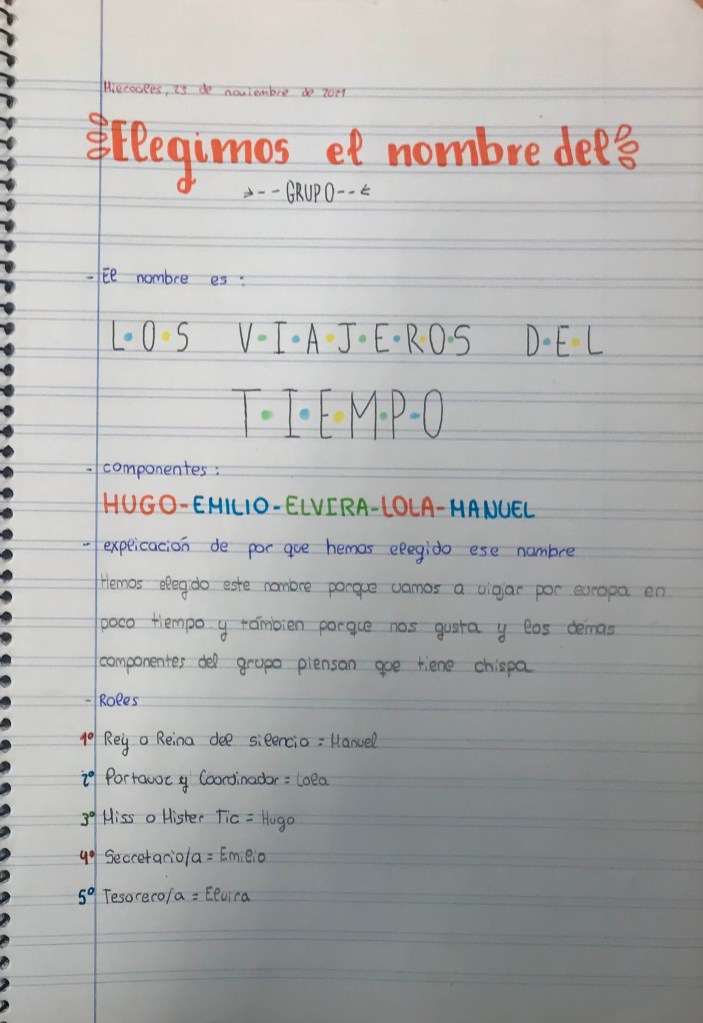 Miercoles, 23 de noviembre de 2021
Elegimos el nombre del
GRUPO
- El nombre es :
L·O·S V·I·A·J·E·R·O·S D·E·L
T·I·E·M·P·O
- componentes :
HUGO-EMILIO-ELVIRA-LOLA-MANUEL
- explicación de por que hemos elegido ese nombre
Hemos elegido este nombre porque vamos a viajar por europa en
poco tiempo y támbien porque nos gusta y los demás
componentes del grupo piensan que tiene chispa
- Roles
1º Rey o Reina del silencio = Manuel
2º Portavoz y Coordinador = Lola
3º Miss o Mister Tic = Hugo
4º Secretario/a = Emilio
5º Tesorero/a = Elvira